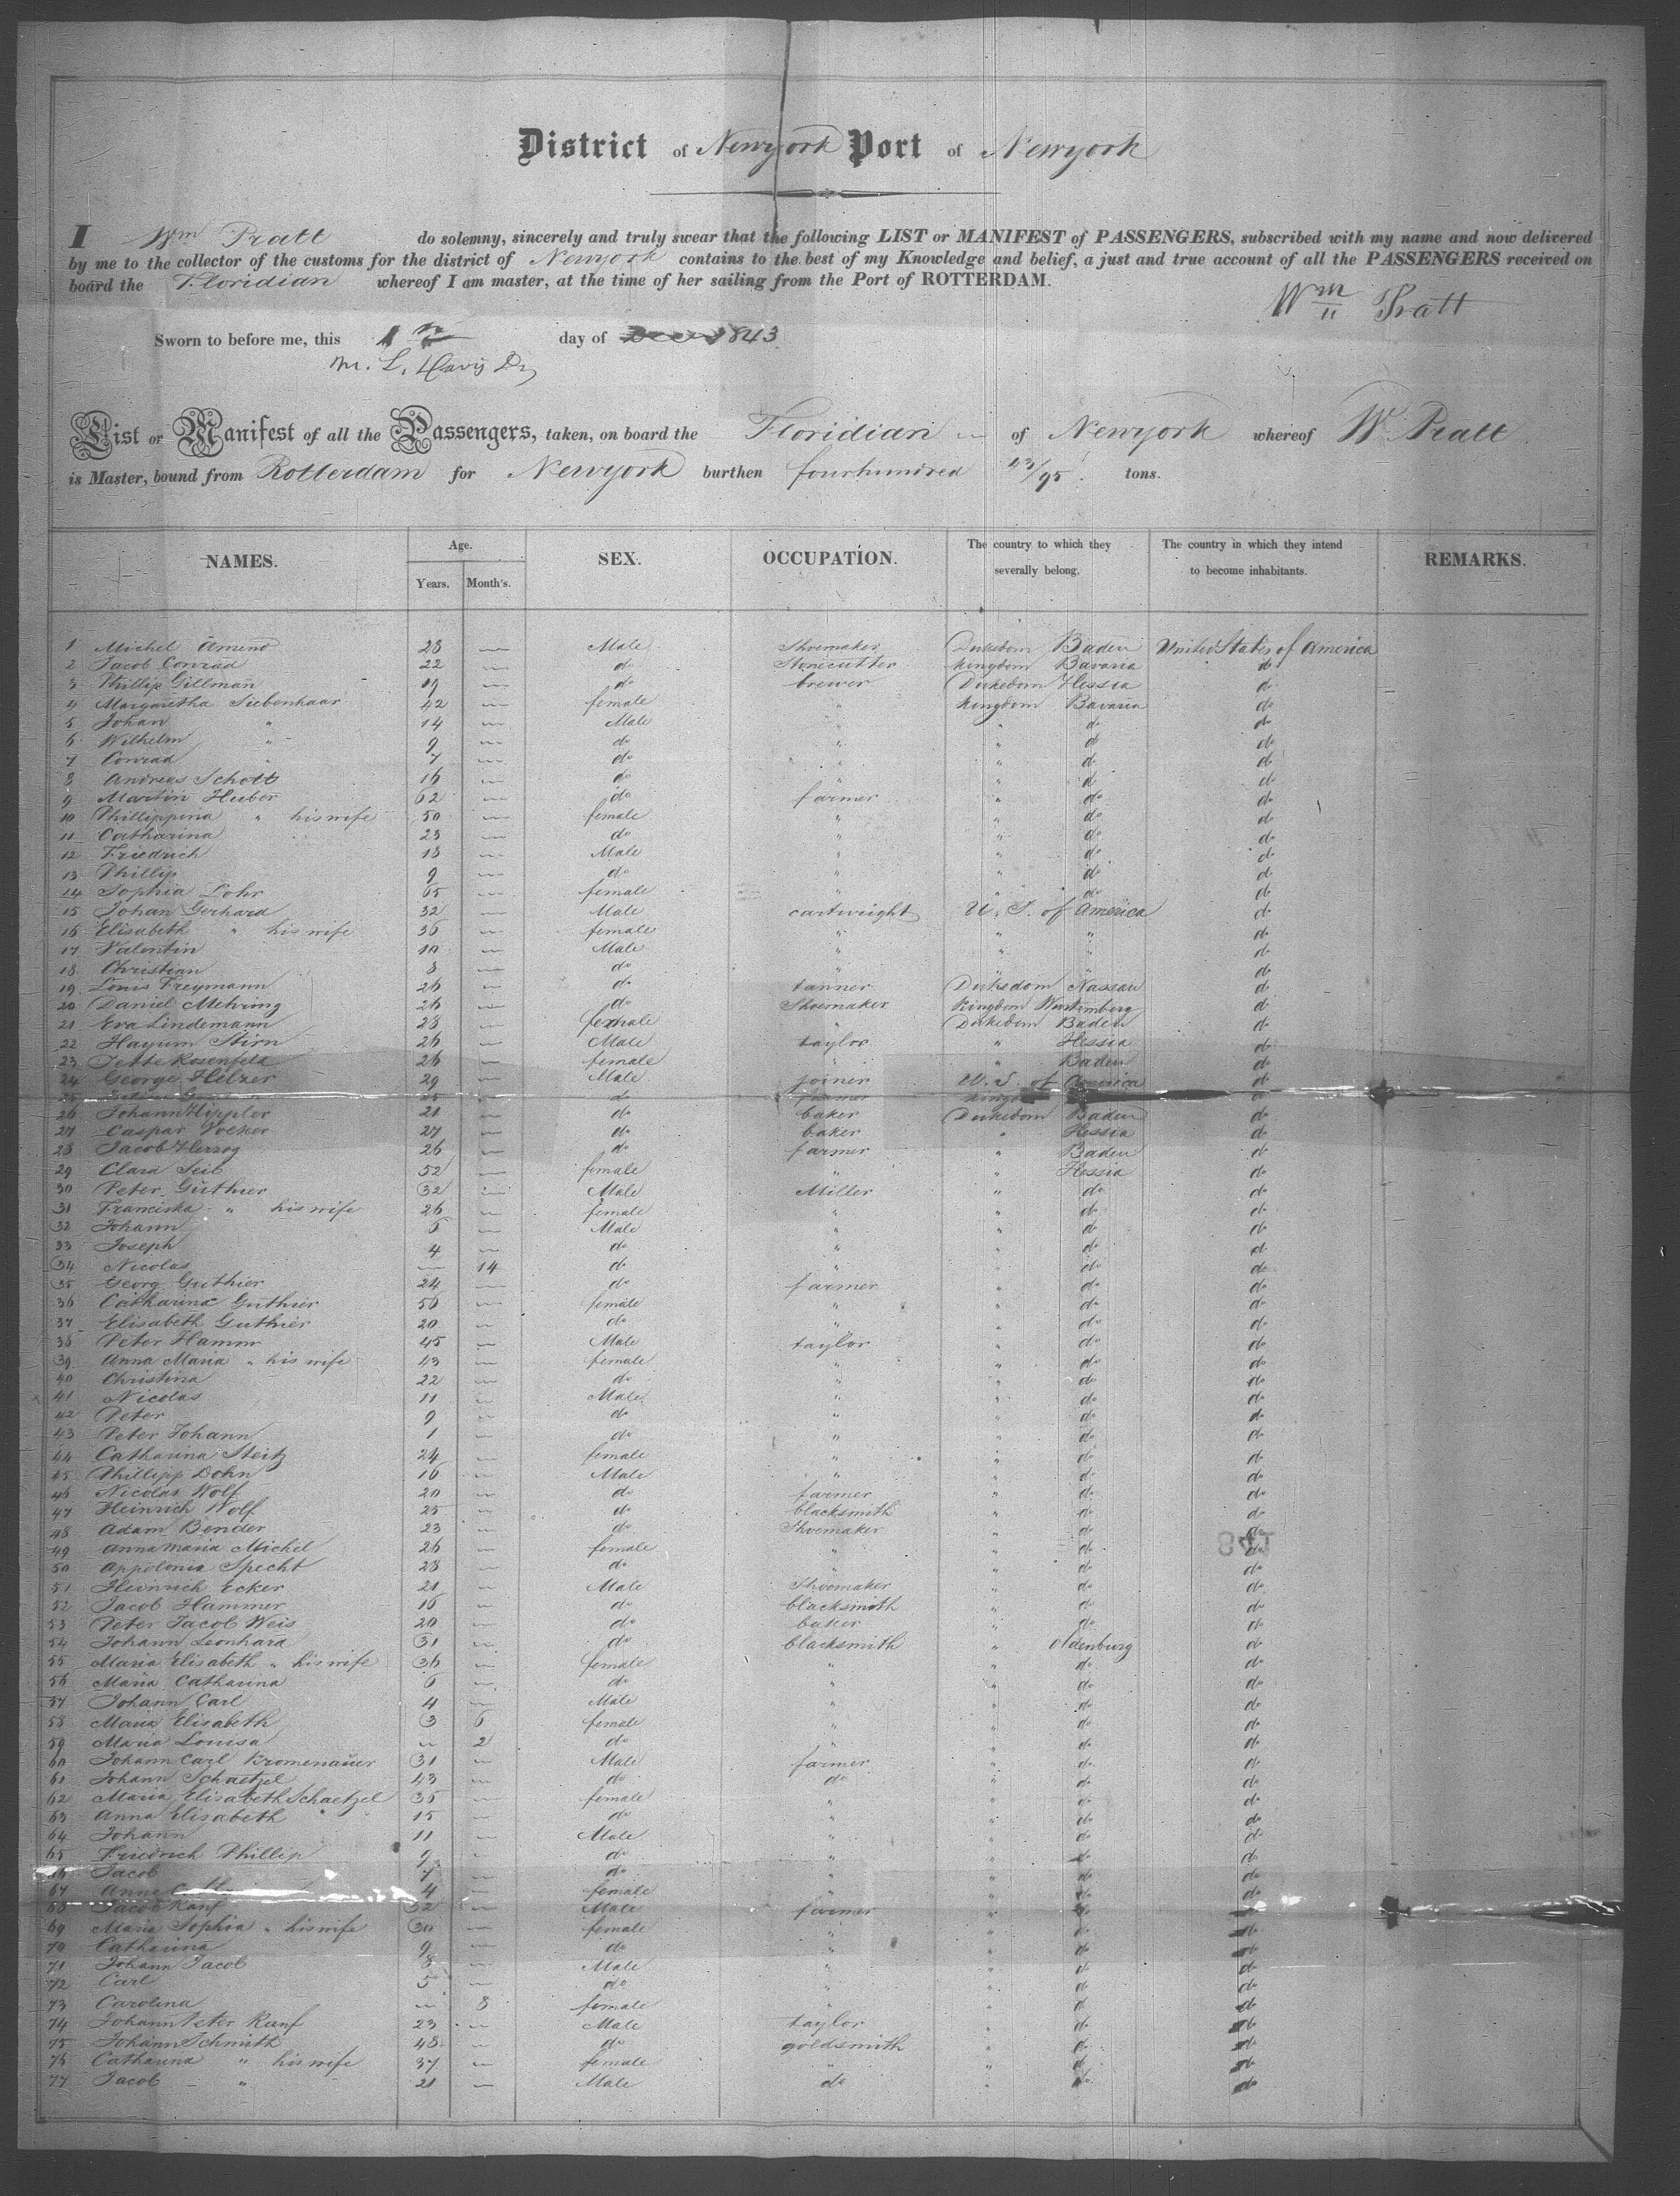 District of Newyork Port of Newyork
I Wm Pratt do solemny, sincerely and truly swear that the following LIST or MANIFEST of PASSENGERS, subscribed with my name and now delivered
by me to the collector of the customs for the district of Newyork contains to the best of my Knowledge and belief, a just and true account of all the PASSENGERS received on
board the Floridian whereof I am master, at the time of her sailing from the Port of ROTTERDAM.
Wm Pratt
Sworn to before me, this 1 day of 1843
M. L. Davis
List or Manifest of all the Passengers, taken, on board the Floridian of Newyork whereof Wm Pratt
is Master, bound from Rotterdam for Newyork burthen fourhundred 23/95 tons.
NAMES. Age. Years. Month's. SEX. OCCUPATION. The country to which they severally belong. The country in which they intend to become inhabitants. REMARKS.
1 Michel Amend 28 Male Shoemaker Dukedom Baden United States of America
2 Jacob Conrad 22 do Stonecutter kingdom Bavaria do
3 Phillip Gillmann 19 do brewer Dukedom Hessia do
4 Margaretha Siebenhaar 42 female " kingdom Bavaria do
5 Johan " 14 Male " " do do
6 Wilhelm " 9 do " " do do
7 Conrad " 7 do " " do do
8 Andreas Schott 16 do " " do do
9 Martin Huber 62 do farmer " do do
10 Phillippina " his wife 50 female " " do do
11 Catharina 23 do " " do do
12 Friedrich 18 Male " " do do
13 Phillip 9 do " " do do
14 Sophia Lohr 65 female " " do do
15 Johan Gerhard 32 Male cartwright U. S. of America do
16 Elisabeth " his wife 36 female " " " do
17 Valentin 10 Male " " " do
18 Christian 8 do " " " do
19 Louis Freymann 26 do tanner Dukedom Nassau do
20 Daniel Mehring 26 do Shoemaker kingdom Wurtemberg do
21 Eva Lindemann 28 female " Dukedom Baden do
22 Hayum Stirn 26 Male taylor " Hessia do
23 Jette Rosenfeld 26 female " " Baden do
24 George Helzer 29 Male joiner U. S. of America do
25 25 do farmer do
26 Johann Hippler 21 do baker Dukedom Baden do
27 Caspar Volker 27 do baker " Hessia do
28 Jacob Herzog 26 do farmer " Baden do
29 Clara Seib 52 female " " Hessia do
30 Peter Guthier 32 Male Miller " do do
31 Franciska " his wife 26 female " " do do
32 Johann 6 Male " " do do
33 Joseph 4 do " " do do
34 Nicolas 14 do " " do do
35 Georg Guthier 24 do farmer " do do
36 Catharina Guthier 56 female " " do do
37 Elisabeth Guthier 20 do " " do do
38 Peter Hamm 45 Male taylor " do do
39 Anna Maria " his wife 43 female " " do do
40 Christina 22 do " " do do
41 Nicolas 11 Male " " do do
42 Peter 9 do " " do do
43 Peter Johann 1 do " " do do
44 Catharina Steitz 24 female " " do do
45 Phillipp Dohn 16 Male " " do do
46 Nicolas Wolf 20 do farmer " do do
47 Heinrich Wolf 25 do blacksmith " do do
48 Adam Bender 23 do Shoemaker " do do
49 Anna Maria Michel 26 female " " do do
50 Appolonia Specht 28 do " do do
51 Heinrich Ecker 21 Male Shoemaker " do do
52 Jacob Hammer 16 do blacksmith " do do
53 Peter Jacob Weis 20 do baker " do do
54 Johann Leonhard 31 do blacksmith " Oldenburg do
55 Maria Elisabeth " his wife 36 female " " do do
56 Maria Catharina 6 do " " do do
57 Johann Carl 4 Male " " do do
58 Maria Elisabeth 3 6 female " " do do
59 Maria Louisa 2 do " " do do
60 Johann Carl Kromenauer 31 Male farmer " do do
61 Johann Schaetzel 43 do do " do do
62 Maria Elisabeth Schaetzel 36 female " " do do
63 Anna Elisabeth " 15 do " " do do
64 Johann 11 Male " " do do
65 Friedrich Phillip 9 do " " do do
66 Jacob 7 do " " do do
67 Anna 4 female " " do do
68 Jacob Ranf 32 Male farmer " do do
69 Maria Sophia " his wife 30 female " " do do
70 Catharina 9 do " " do do
71 Johann Jacob 8 Male " " do do
72 Carl 5 do " " do do
73 Carolina 8 female " " do do
74 Johann Peter Ranf 23 Male taylor " do do
75 Johann Schmith 48 do goldsmith " do do
76 Catharina " his wife 37 female " " do do
77 Jacob " 21 Male do " do do